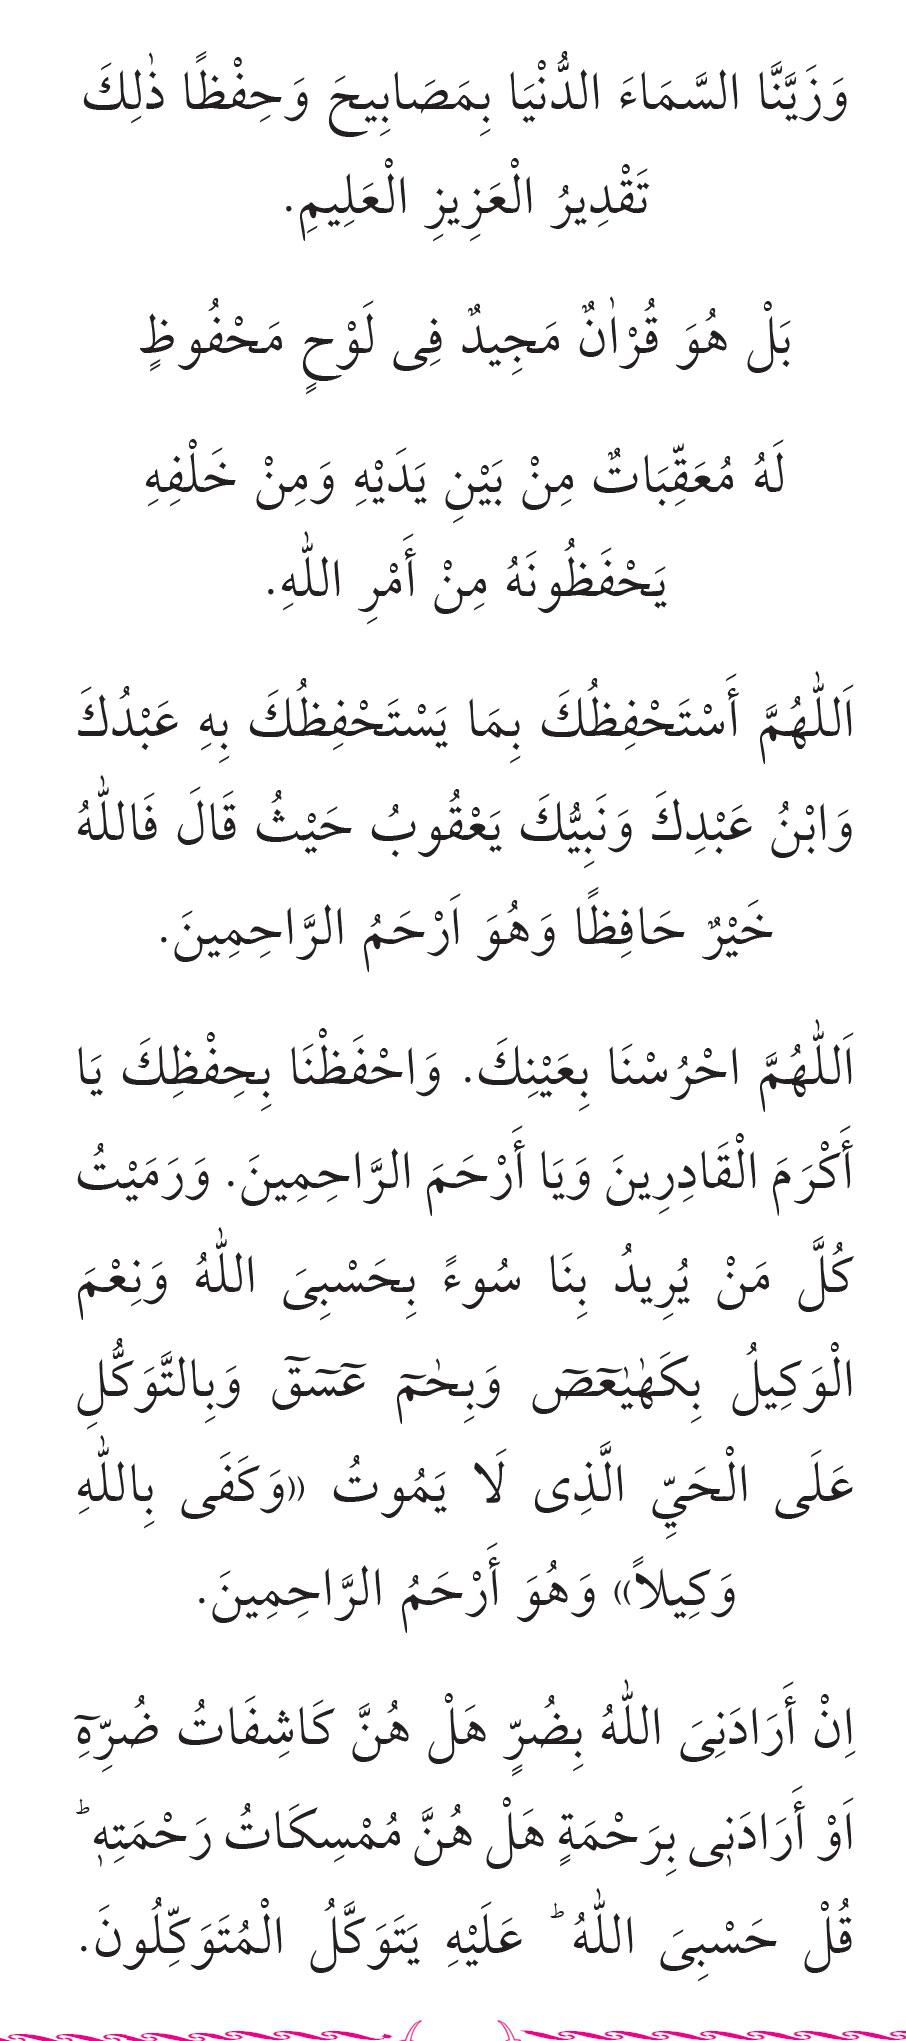 وَزَيَّنَّا السَّمَاءَ الدُّنْيَا بِمَصَابِيحَ وَحِفْظًا ذٰلِكَ
تَقْدِيرُ الْعَزِيزِ الْعَلِيمِ.
بَلْ هُوَ قُرْاٰنٌ مَجِيدٌ فِى لَوْحٍ مَحْفُوظٍ
لَهُ مُعَقِّبَاتٌ مِنْ بَيْنِ يَدَيْهِ وَمِنْ خَلْفِهِ
يَحْفَظُونَهُ مِنْ أَمْرِ اللّٰهِ.
اَللّٰهُمَّ أَسْتَحْفِظُكَ بِمَا يَسْتَحْفِظُكَ بِهِ عَبْدُكَ
وَابْنُ عَبْدِكَ وَنَبِيُّكَ يَعْقُوبُ حَيْثُ قَالَ فَاللّٰهُ
خَيْرٌ حَافِظًا وَهُوَ اَرْحَمُ الرَّاحِمِينَ.
اَللّٰهُمَّ احْرُسْنَا بِعَيْنِكَ. وَاحْفَظْنَا بِحِفْظِكَ يَا
أَكْرَمَ الْقَادِرِينَ وَيَا أَرْحَمَ الرَّاحِمِينَ. وَرَمَيْتُ
كُلَّ مَنْ يُرِيدُ بِنَا سُوءً بِحَسْبِىَ اللّٰهُ وَنِعْمَ
الْوَكِيلُ بِكَهٰيٰعٓصٓ وَبِحٰمٓ عٓسٓقٓ وَبِالتَّوَكُّلِ
عَلَى الْحَيِّ الَّذِى لَا يَمُوتُ «وَكَفَى بِاللّٰهِ
وَكِيلاً» وَهُوَ أَرْحَمُ الرَّاحِمِينَ.
اِنْ أَرَادَنِىَ اللّٰهُ بِضُرٍّ هَلْ هُنَّ كَاشِفَاتُ ضُرِّهِٓ
اَوْ أَرَادَنٖى بِرَحْمَةٍ هَلْ هُنَّ مُمْسِكَاتُ رَحْمَتِهٖ ؕ
قُلْ حَسْبِىَ اللّٰهُ ؕ عَلَيْهِ يَتَوَكَّلُ الْمُتَوَكِّلُونَ.